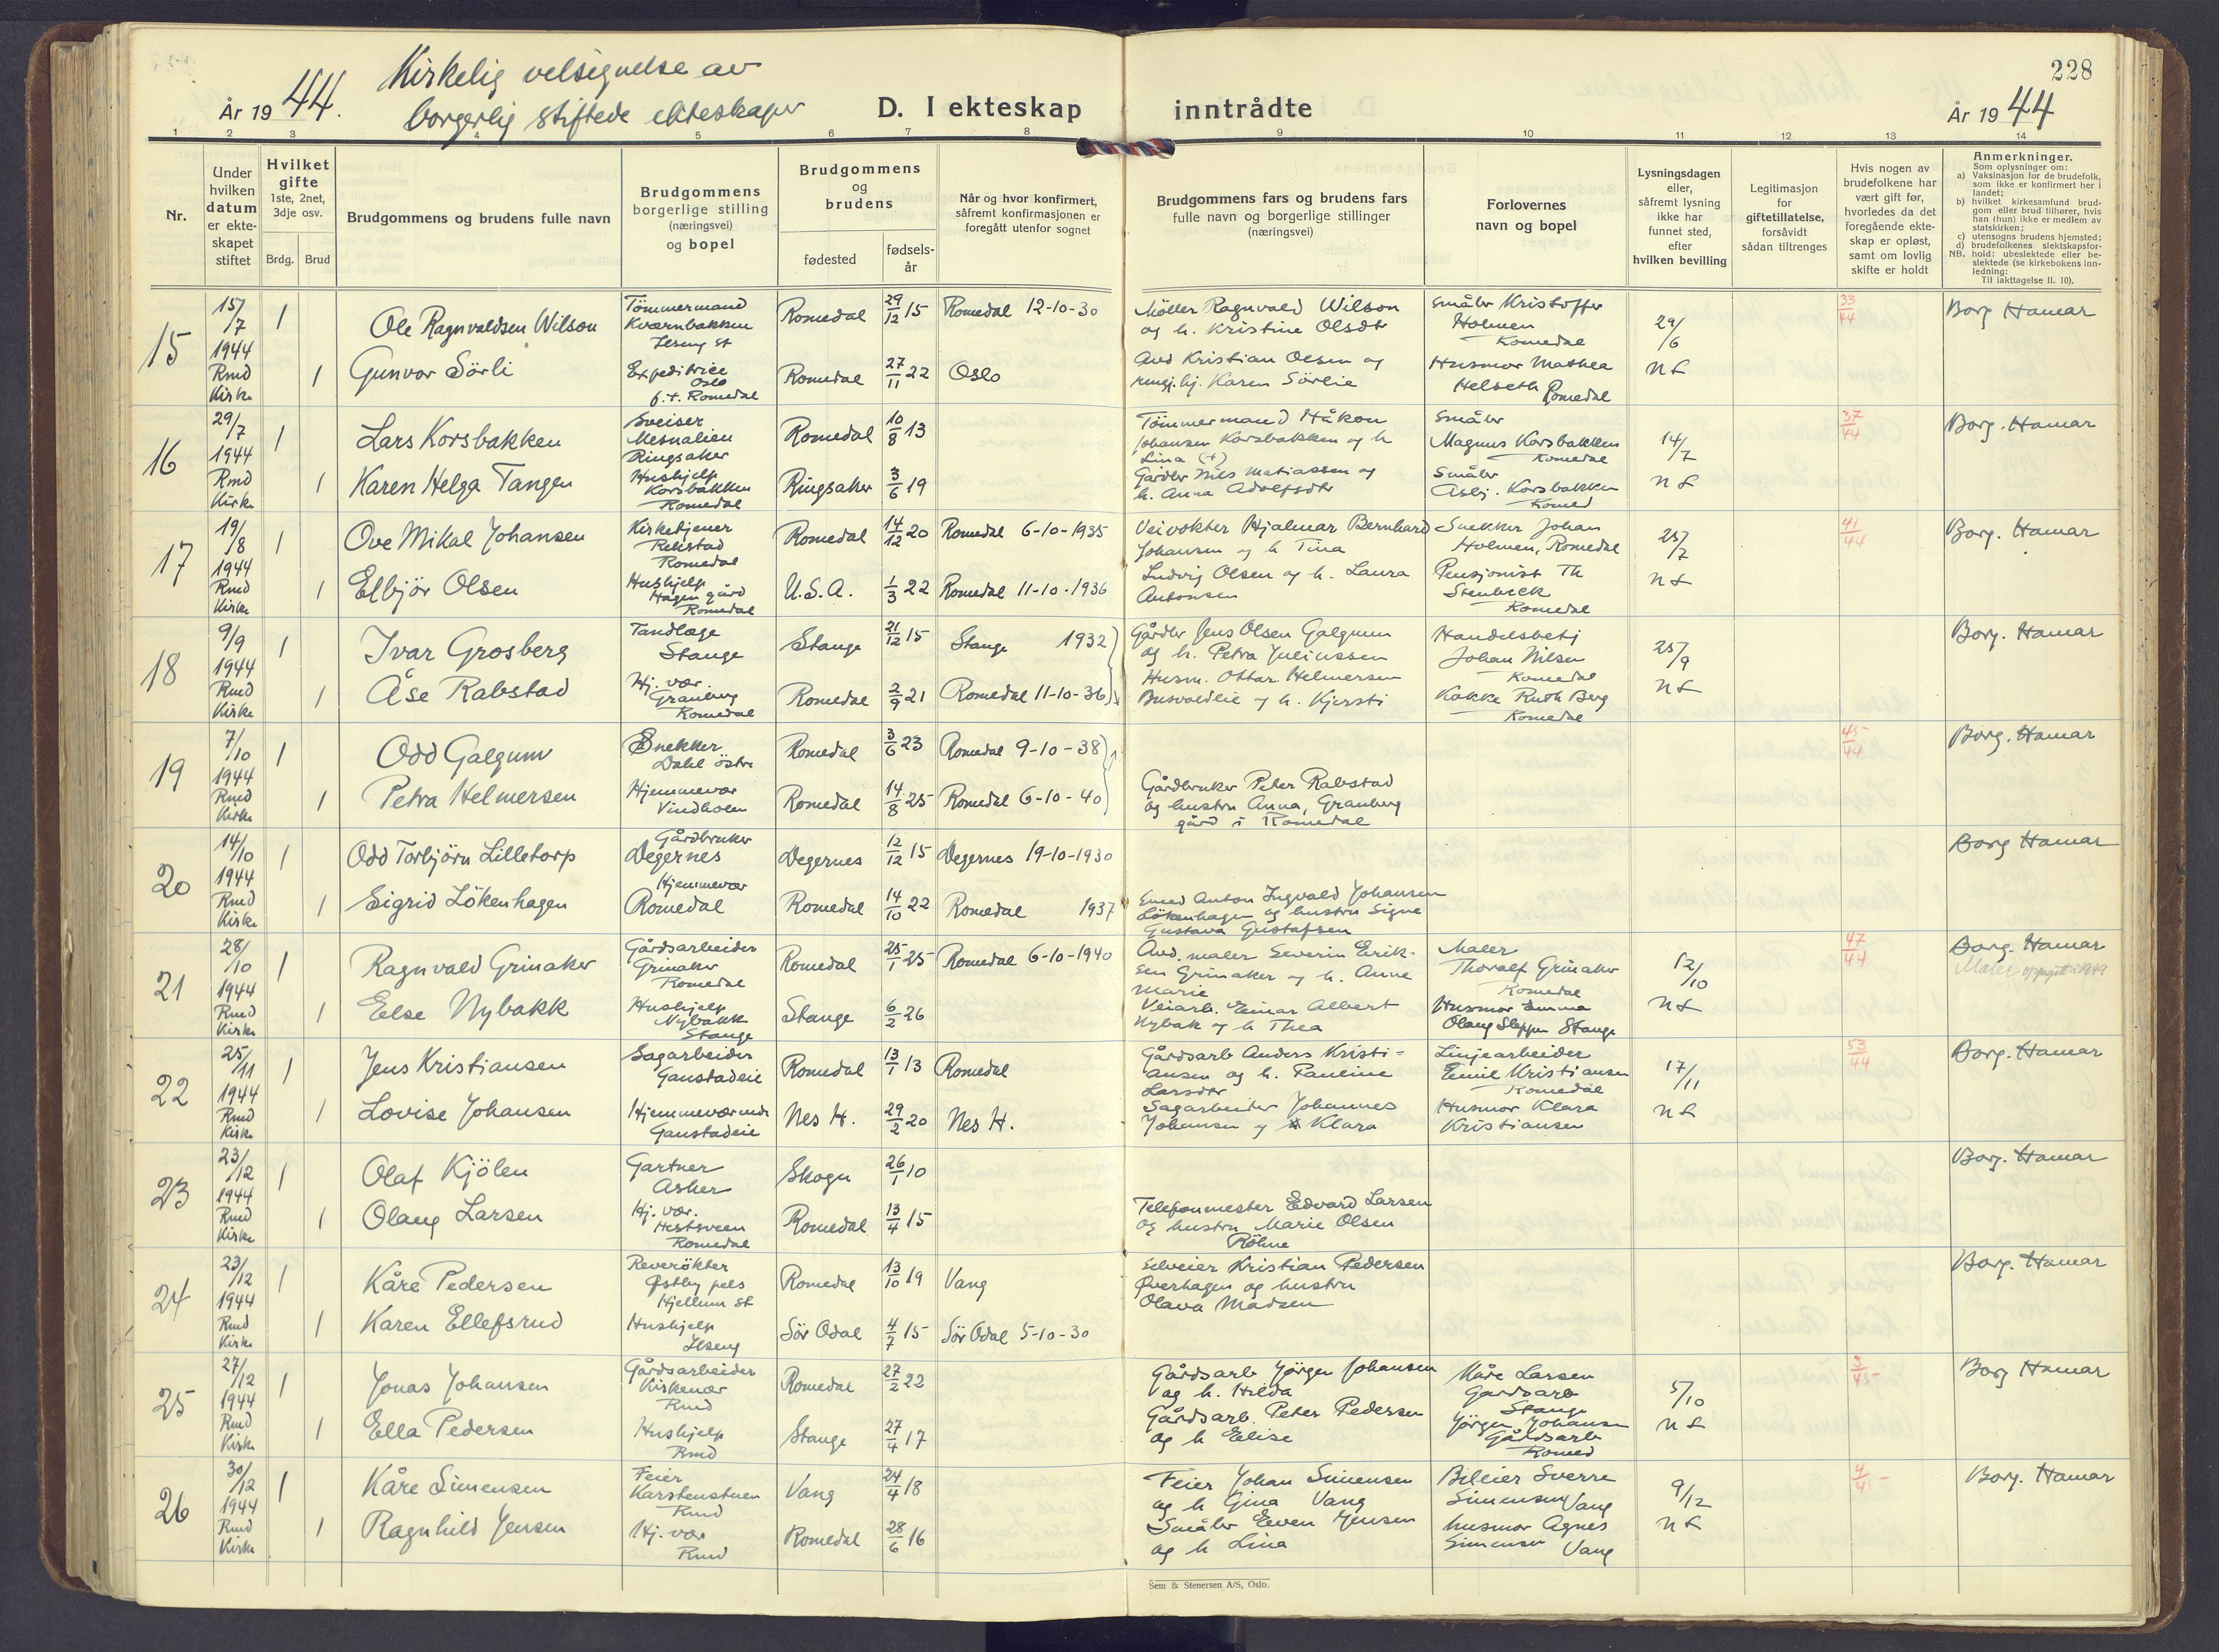 228
Kirkelig velsignelse av
År 1944. borgerlig stiftede ekteskaper D. I ekteskap inntrådte År 1944
1 2 3 4 5 6 7 8 9 10 11 12 13 14
Nr.
Under hvilken datum er ekteskapet stiftet
Hvilket gifte 1ste, 2net, 3dje osv.
Brdg. Brud
Brudgommens og brudens fulle navn
Brudgommens borgerlige stilling (næringsvei) og bopel
Brudgommens og brudens
fødested
fødsels-år
Når og hvor konfirmert, såfremt konfirmasjonen er foregått utenfor sognet
Brudgommens fars og brudens fars fulle navn og borgerlige stillinger (næringsvei)
Forlovernes navn og bopel
Lysningsdagen eller, såfremt lysning ikke har funnet sted, efter hvilken bevilling
Legitimasjon for giftetillatelse, forsåvidt sådan tiltrenges
Hvis nogen av brudefolkene har vært gift før, hvorledes da det foregående ekteskap er opløst, samt om lovlig skifte er holdt
Anmerkninger.
Som oplysninger om:
a) Vaksinasjon for de brudefolk, som ikke er konfirmert her i landet;
b) hvilket kirkesamfund brudgom eller brud tilhører, hvis han (hun) ikke er medlem av statskirken;
c) utensogns brudens hjemsted;
d) brudefolkenes slektskapsforhold: ubeslektede eller beslektede (se kirkebokens innledning:
NB. Til iakttagelse II. 10).
15 15/7 1944 Rmd Kirke
1 Ole Ragnvaldsen Wilson Tömmermand Kværnbakken Ilseng st Romedal 29/12 15 Romedal 12-10-30 Möller Ragnvald Wilson og h. Kristine Olsdtr Småbr Kristoffer Holmen Romedal 29/6 33/44 Borg Hamar
1 Gunvor Sörli Expeditrice Oslo f.t. Romedal Romedal 27/11 22 Oslo Arb Kristian Olsen og rengj.hj. Karen Sörlie Husmor Mathea Helseth Romedal
16 29/7 1944 Rmd Kirke
1 Lars Korsbakken Sveiser Mesnalien Ringsaker Romedal 10/8 13 Tömmermand Håkon Johansen Korsbakken og h Lina (+) Småbr Magnus Korsbakken Romedal 14/7 37/44 Borg. Hamar
1 Karen Helga Tangen Hushjelp Korsbakken Romedal Ringsaker 3/6 19 Gårdbr Nils Matiassen og h. Anna Adolfsdtr Småbr Asbj. Korsbakken Romed
17 19/8 1944 Rmd Kirke
1 Ove Mikal Johansen Kirketjener Rekstad Romedal Romedal 14/12 20 Romedal 6-10-1935 Veivokter Hjalmar Bernhard Johansen og h Tina Snekker Johan Holmen, Romedal 25/7 41/44 Borg. Hamar
1 Elbjör Olsen Hushjelp Hagen gård Romedal U.S.A. 1/3 22 Romedal 11-10-1936 Ludvig Olsen og h. Laura Antonsen Pensjonist Th Stenbeck Romedal
18 9/9 1944 Rmd Kirke
1 Ivar Grosberg Tandlæge Stange Stange 21/12 15 Stange 1932 Gårdbr Jens Olsen Galgum og h. Petra Juliussen Handelsbetj Johan Nilsen Romedal 25/9 Borg. Hamar
1 Åse Rabstad Hj. vær. Granberg Romedal Romedal 2/9 21 Romedal 11-10-36 Husm. Ottar Helmersen Busvoldeie og h. Kjersti Kokke Ruth Berg Romedal
19 7/10 1944 Rmd Kirke
1 Odd Galgum Snekker Dahl östre Romedal 3/6 23 Romedal 9-10-38 45/44 Borg. Hamar
1 Petra Helmersen Hjemmevær Vindhoen Romedal 14/8 25 Romedal 6-10-40 Gårdbruker Peter Rabstad og hustru Anna, Granberg gård i Romedal
20 14/10 1944 Rmd Kirke
1 Odd Torbjörn Lilletorp Gårdbruker Degernes Degernes 12/12 15 Degernes 19-10-1930 Borg Hamar
1 Sigrid Lökenhagen Hjemmevær Romedal Romedal 14/10 22 Romedal 1937 Anton Ingvald Johansen Lökenhagen og hustru Signe Gustava Gustafsen
21 28/10 1944 Rmd Kirke
1 Ragnvald Grinaker Gårdsarbeider Grinaker Romedal Romedal 25/1 25 Romedal 6-10-1940 Arb. maler Severin Eriksen Grinaker og h. Anne Marie Maler Thoralf Grinaker Romedal 12/10 47/44 Borg. Hamar
1 Else Nybakk Hushjelp Nybakk Stange Stange 6/2 26 Veiarb. Einar Albert Nybak og h Thea Husmor Emma Olaug Sleppen Stange
22 25/11 1944 Rmd Kirke
1 Jens Kristiansen Sagarbeider Gaustadeie Romedal 13/1 13 Romedal Gårdsarb Anders Kristiansen og h. Pauline Larsdtr Linjearbeider Emil Kristiansen Romedal 17/11 53/44 Borg. Hamar
1 Lovise Johansen Hjemmeværende Gaustadeie Nes H. 29/2 20 Nes H. Sagarbeider Johannes Johansen og Klara Husmor Klara Kristiansen
23 23/12 1944 Rmd Kirke
1 Olaf Kjölen Gartner Asker Skogn 26/1 10 Borg. Hamar
1 Olaug Larsen Hj. vær. Hestsveen Romedal Romedal 13/4 15 Telefonmester Edvard Larsen og hustru Marie Olsen Röhne
24 23/12 1944 Rmd Kirke
1 Kåre Pedersen Reverökter Østby pels Hjellum st Romedal 13/10 19 Vang Selveier Kristian Pedersen Øverhagen og hustru Olava Madsen Borg. Hamar
1 Karen Ellefsrud Hushjelp Ilseng Sör Odal 4/7 15 Sör Odal 5-10-30
25 27/12 1944 Rmd Kirke
1 Jonas Johansen Gårdsarbeider Kirkenær Rmd Romedal 27/2 22 Gårdsarb Jörgen Johansen og h. Hilda Kåre Larsen Gårdsarb Stange 5/10 3/45 Borg Hamar
1 Ella Pedersen Hushjelp Rmd Stange 27/4 17 Gårdsarb. Peter Pedersen og h Elise Jörgen Johansen Gårdsarb Romed
26 30/12 1944 Rmd Kirke
1 Kåre Simensen Feier Karstenstuen Rmd Vang 24/4 18 Feier Johan Simensen og h Gina Vang Bileier Sverre Simensen Vang 9/12 Borg. Hamar
1 Ragnhild Jensen Hj. vær Rmd Romedal 28/6 16 Småbr Even Jensen og h Lina Husmor Agnes Simensen Vang
Sem & Stenersen A/S, Oslo.